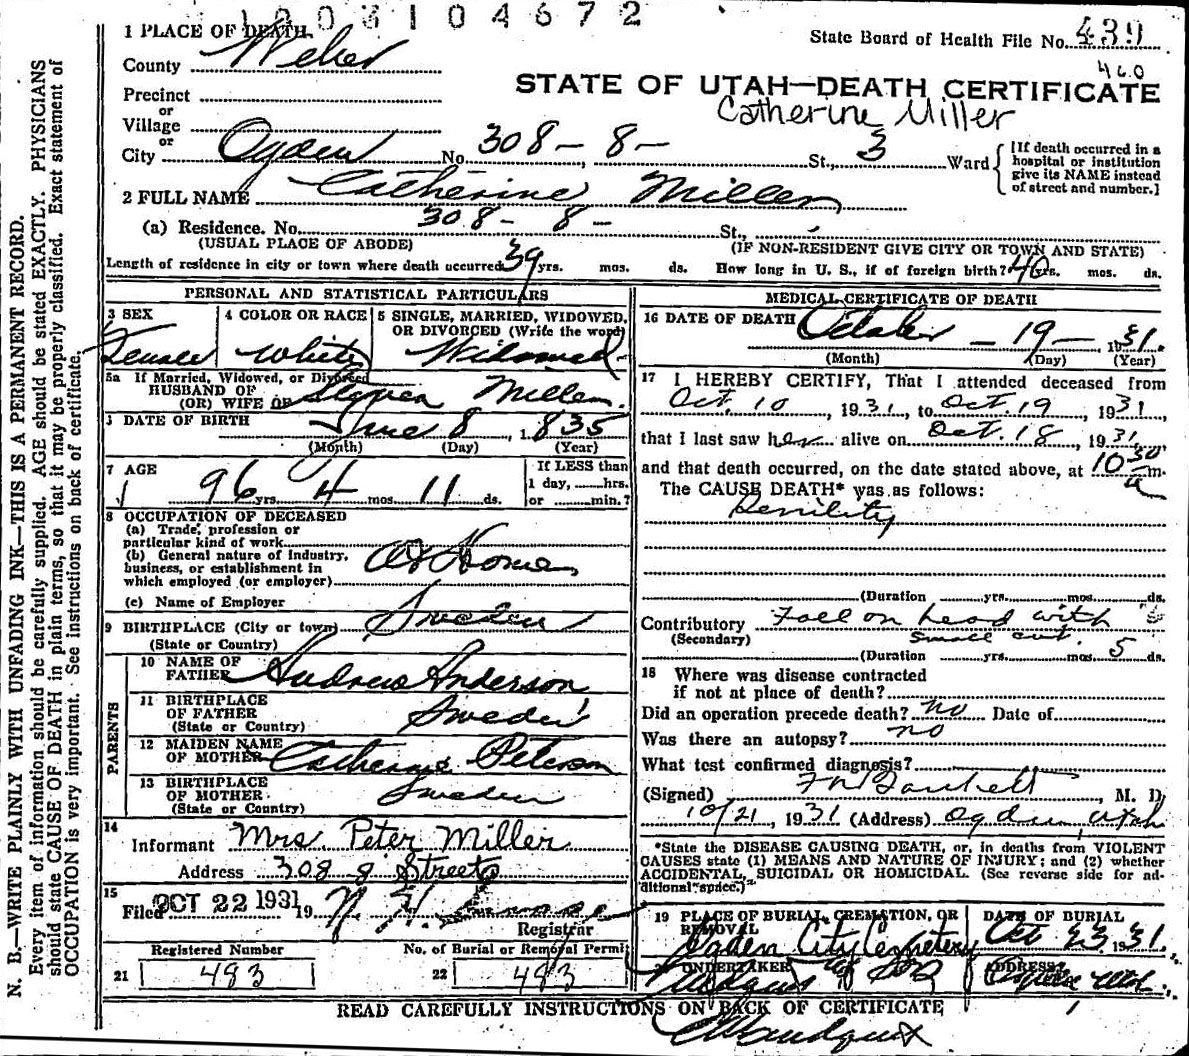 1003104672
1 PLACE OF DEATH
State Board of Health File No. 439
County Weber
460
STATE OF UTAH—DEATH CERTIFICATE
Precinct
Catherine Miller
or
Village
or
City Ogden No. 308 - 8 - St., 3 Ward
[If death occurred in a hospital or institution give its NAME instead of street and number.]
2 FULL NAME Catherine Miller
(a) Residence. No. 308 - 8 - St.,
(USUAL PLACE OF ABODE) (IF NON-RESIDENT GIVE CITY OR TOWN AND STATE)
Length of residence in city or town where death occurred 39 yrs. mos. ds. How long in U. S., if of foreign birth? 40 yrs. mos. ds.
PERSONAL AND STATISTICAL PARTICULARS
3 SEX Female
4 COLOR OR RACE White
5 SINGLE, MARRIED, WIDOWED, OR DIVORCED (Write the word) Widowed
5a If Married, Widowed, or Divorced
HUSBAND OF
(OR) WIFE OF Miller
DATE OF BIRTH June 8, 1835
(Month) (Day) (Year)
7 AGE 96 yrs. 4 mos. 11 ds.
If LESS than
1 day, hrs.
or min.?
8 OCCUPATION OF DECEASED
(a) Trade, profession or
particular kind of work
(b) General nature of Industry,
business, or establishment in
which employed (or employer) At Home
(c) Name of Employer
9 BIRTHPLACE (City or town) Sweden
(State or Country)
PARENTS
10 NAME OF
FATHER Andrew Anderson
11 BIRTHPLACE
OF FATHER Sweden
(State or Country)
12 MAIDEN NAME
OF MOTHER Catherine Peterson
13 BIRTHPLACE
OF MOTHER Sweden
(State or Country)
14
Informant Mrs. Peter Miller
Address 308 8 Street
15
Filed OCT 22 1931 19
Registrar
Registered Number No. of Burial or Removal Permit
21 493 22 493
MEDICAL CERTIFICATE OF DEATH
16 DATE OF DEATH October - 19 - 1931.
(Month) (Day) (Year)
17 I HEREBY CERTIFY, That I attended deceased from
Oct. 10, 1931, to Oct. 19, 1931,
that I last saw her alive on Oct. 18, 1931,
and that death occurred, on the date stated above, at 10 30 a m.
The CAUSE DEATH* was as follows:
Senility
(Duration yrs. mos. ds.
Contributory Fall on head with
(Secondary) small cut.
(Duration yrs. mos. 5 ds.
18 Where was disease contracted
if not at place of death?
Did an operation precede death? no Date of
Was there an autopsy? no
What test confirmed diagnosis?
(Signed) , M. D.
10/21, 1931 (Address) Ogden, Utah
*State the DISEASE CAUSING DEATH, or, in deaths from VIOLENT
CAUSES state (1) MEANS AND NATURE OF INJURY; and (2) whether
ACCIDENTAL, SUICIDAL OR HOMICIDAL. (See reverse side for ad-
ditional space.)
19 PLACE OF BURIAL, CREMATION, OR REMOVAL Ogden City Cemetery
DATE OF BURIAL Oct 23 1931.
UNDERTAKER
ADDRESS Ogden Utah.
READ CAREFULLY INSTRUCTIONS ON BACK OF CERTIFICATE
N. B.—WRITE PLAINLY WITH UNFADING INK—THIS IS A PERMANENT RECORD.
Every item of information should be carefully supplied. AGE should be stated EXACTLY. PHYSICIANS
should state CAUSE OF DEATH in plain terms, so that it may be properly classified. Exact statement of
OCCUPATION is very important. See instructions on back of certificate.